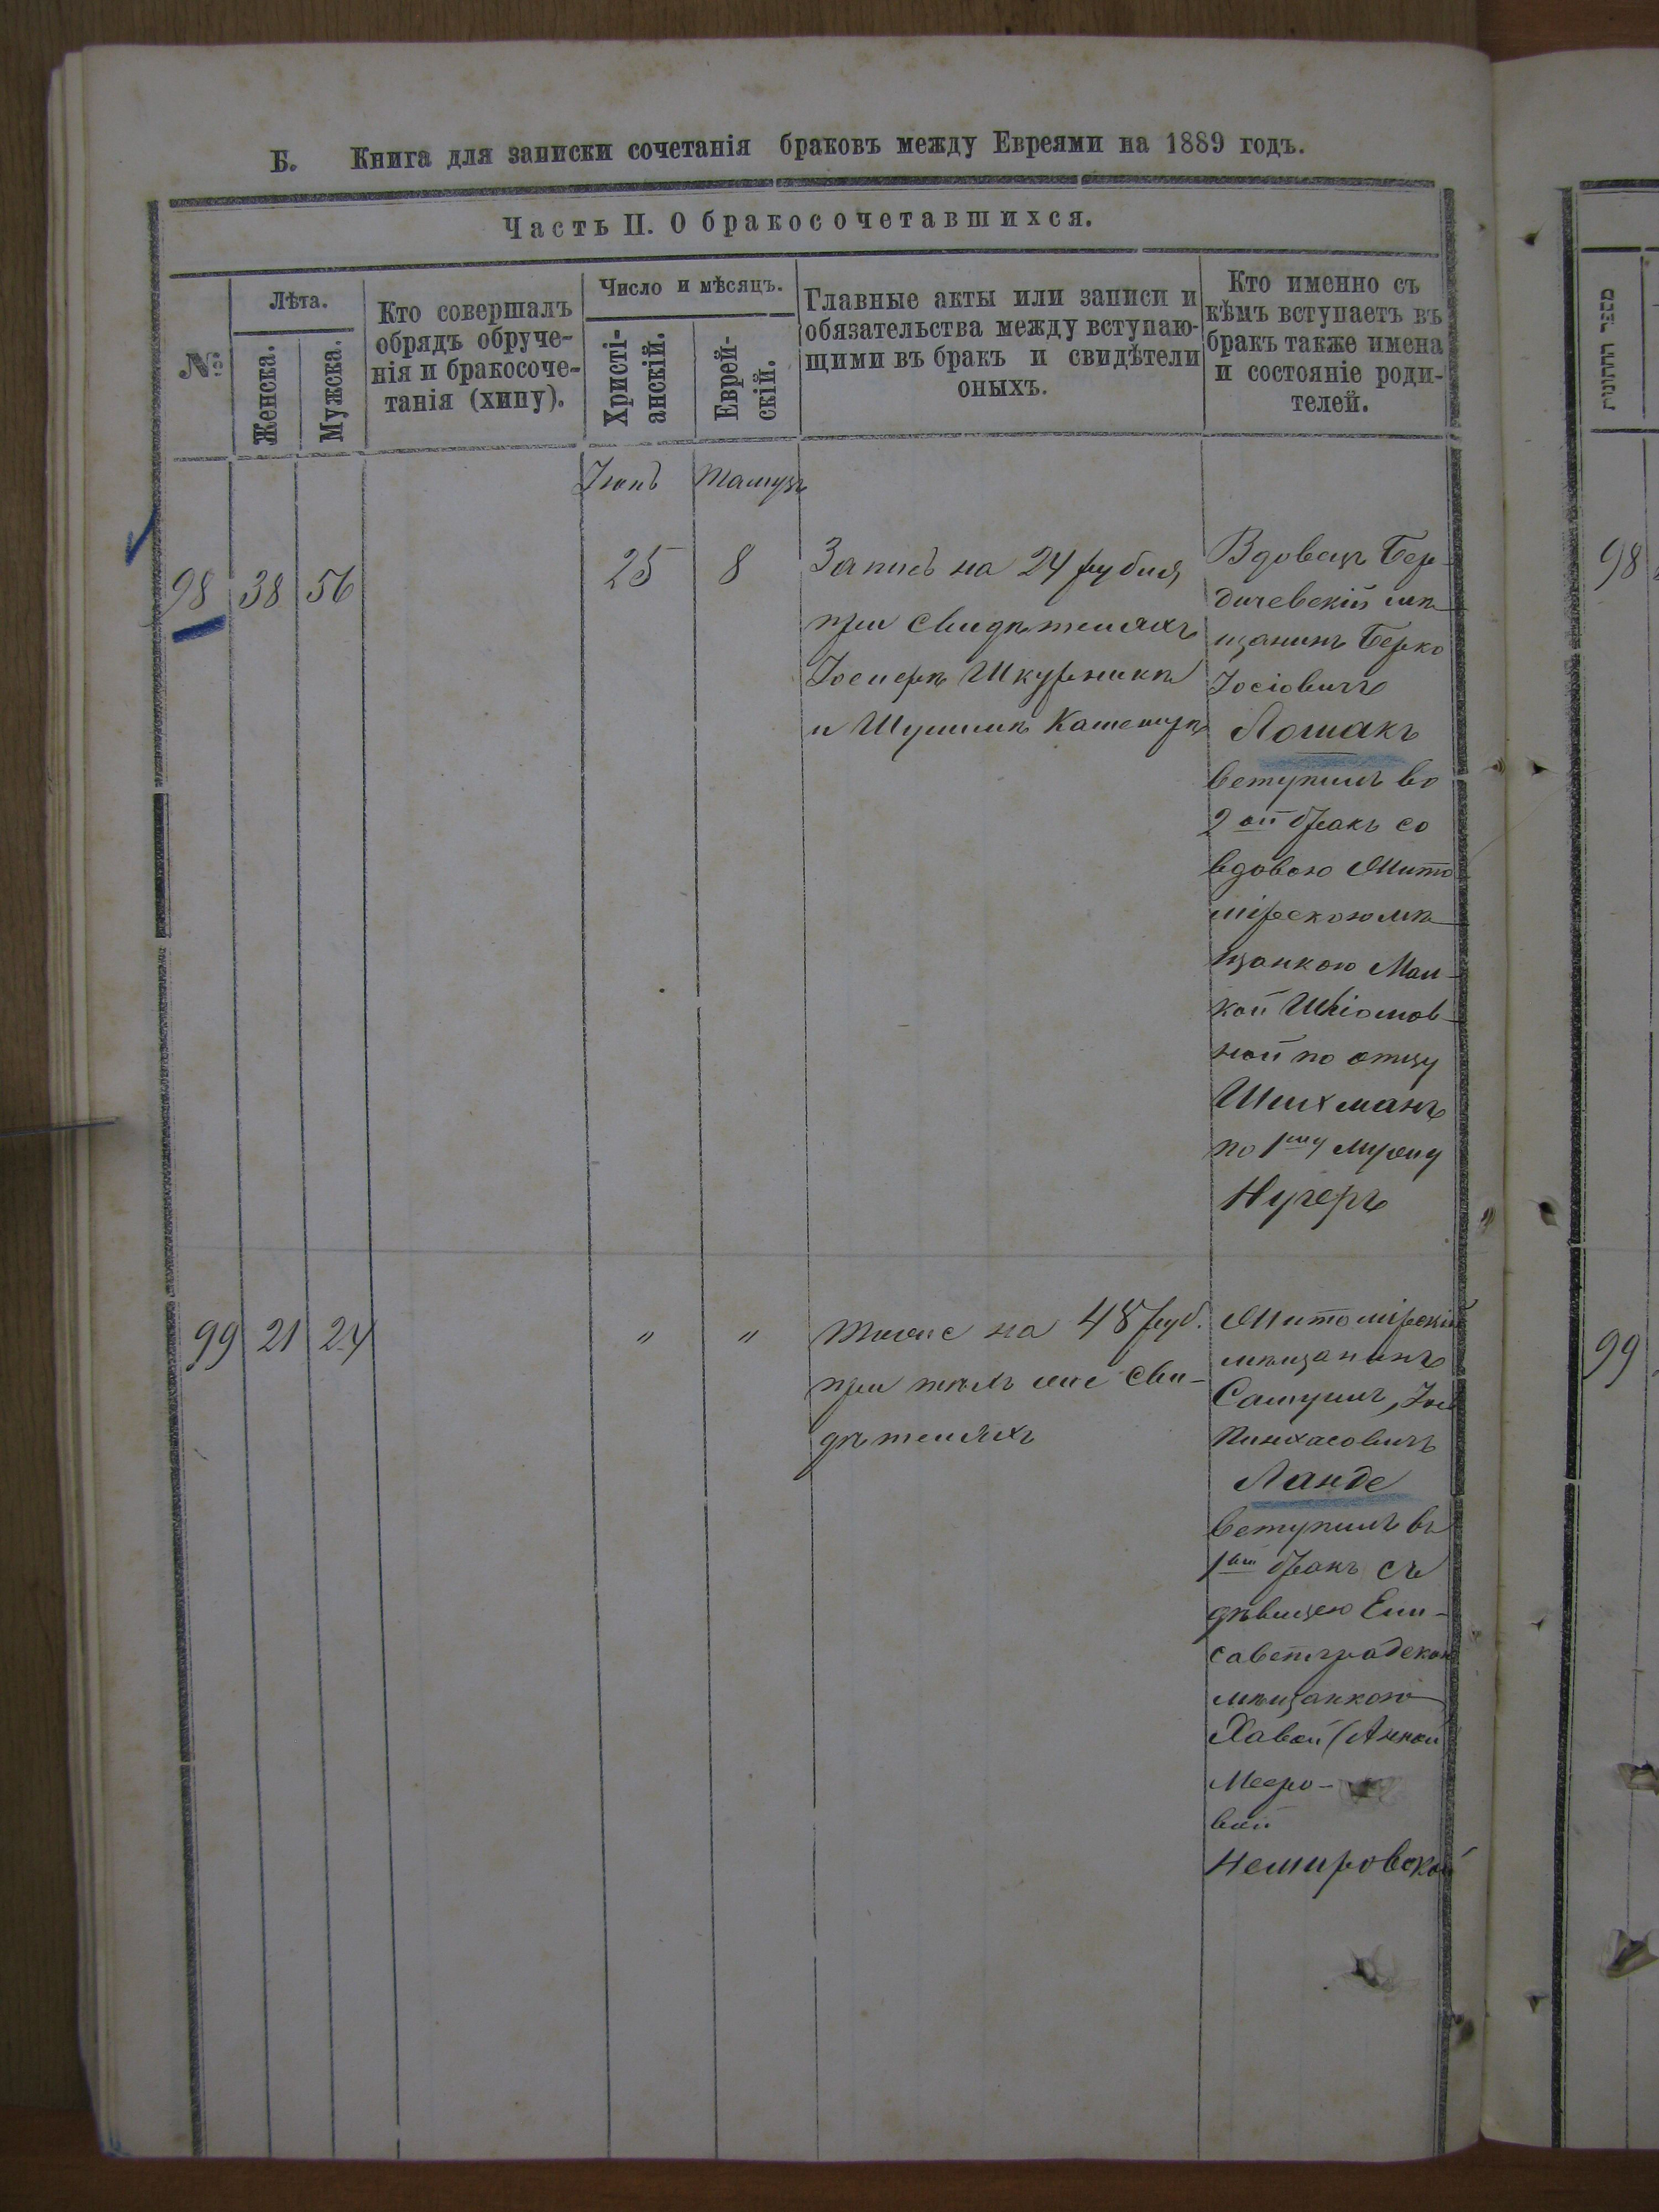 Б. Книга для записки сочетанія браковъ между Евреями на 1889 годъ.
Часть II. О бракосочетавшихся.
№
Лѣта.
Женска.
Мужска.
Кто совершалъ
обрядъ обруче-
нія и бракосоче-
танія (хипу).
Число и мѣсяцъ.
Христі-
анскій.
Еврей-
скій.
Главные акты или записи и
обязательства между вступаю-
щими въ бракъ и свидѣтели
оныхъ.
Кто именно съ
кѣмъ вступаетъ въ
бракъ также имена
и состояніе роди-
телей.
Тамузъ
98 38 56 25 8
Запись на 24 рубля
при свидѣтеляхъ
Іосифѣ Шкурникѣ
и Шулимѣ
Вдовецъ Бер-
дичевскій мѣ-
щанинъ Берко
Іосіовичъ
Лошакъ
вступилъ во
2ой бракъ со
вдовою Жито
мірскою мѣ-
щанкою Мал-
кой
ной по отцу
по 1му мужу
99 21 24 " "
тоже на 48 руб.
при тѣхъ же сви-
дѣтеляхъ
Житомірскій
мѣщанинъ
Самуилъ,
Пинхасовичъ
Ланде
вступилъ въ
1ый бракъ съ
дѣвицею Ели-
саветградской
мѣщанкою
Хавой (Анной
Мееро-
вой
Немировской
מספר החתונות
98
99